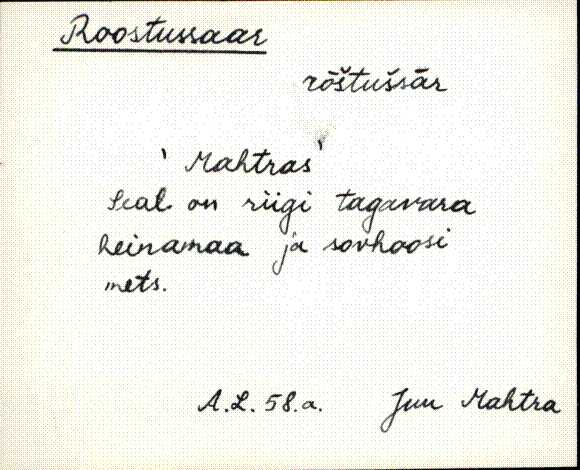 Roostussaar
rōštušsār
' Mahtras'
Seal on riigi tagavara
heinamaa ja sovhoosi
mets.
A.L. 58.a. Juu Mahtra